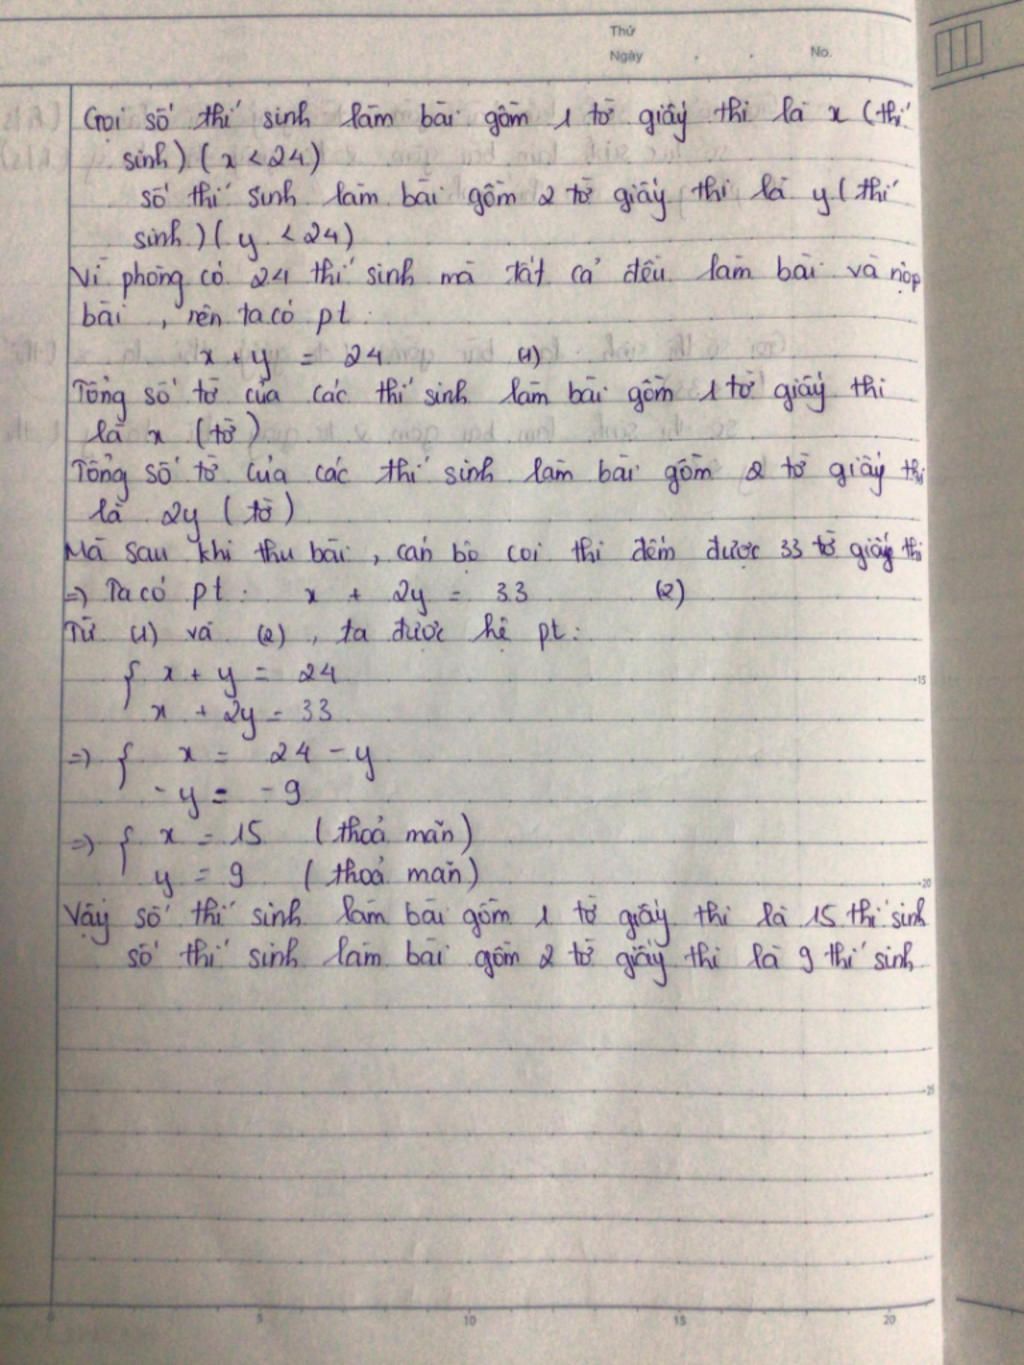 Thứ
Ngày . . No.
Gọi số thí sinh làm bài gồm 1 tờ giấy thi là x (thí
sinh) (x < 24)
số thí sinh làm bài gồm 2 tờ giấy thi là y (thí
sinh) (y < 24)
Vì phòng có 24 thí sinh mà tất cả đều làm bài và nộp
bài, nên ta có pt:
x + y = 24 (1)
Tổng số tờ của các thí sinh làm bài gồm 1 tờ giấy thi
là x (tờ)
Tổng số tờ của các thí sinh làm bài gồm 2 tờ giấy thi
là 2y (tờ)
Mà sau khi thu bài, cán bộ coi thi đếm được 33 tờ giấy thi
=> Ta có pt: x + 2y = 33 (2)
Từ (1) và (2), ta được hệ pt:
{ x + y = 24
x + 2y = 33
=> { x = 24 - y
-y = -9
=> { x = 15 (thoả mãn)
y = 9 (thoả mãn)
Vậy số thí sinh làm bài gồm 1 tờ giấy thi là 15 thí sinh
số thí sinh làm bài gồm 2 tờ giấy thi là 9 thí sinh
15
20
25
0 5 10 15 20